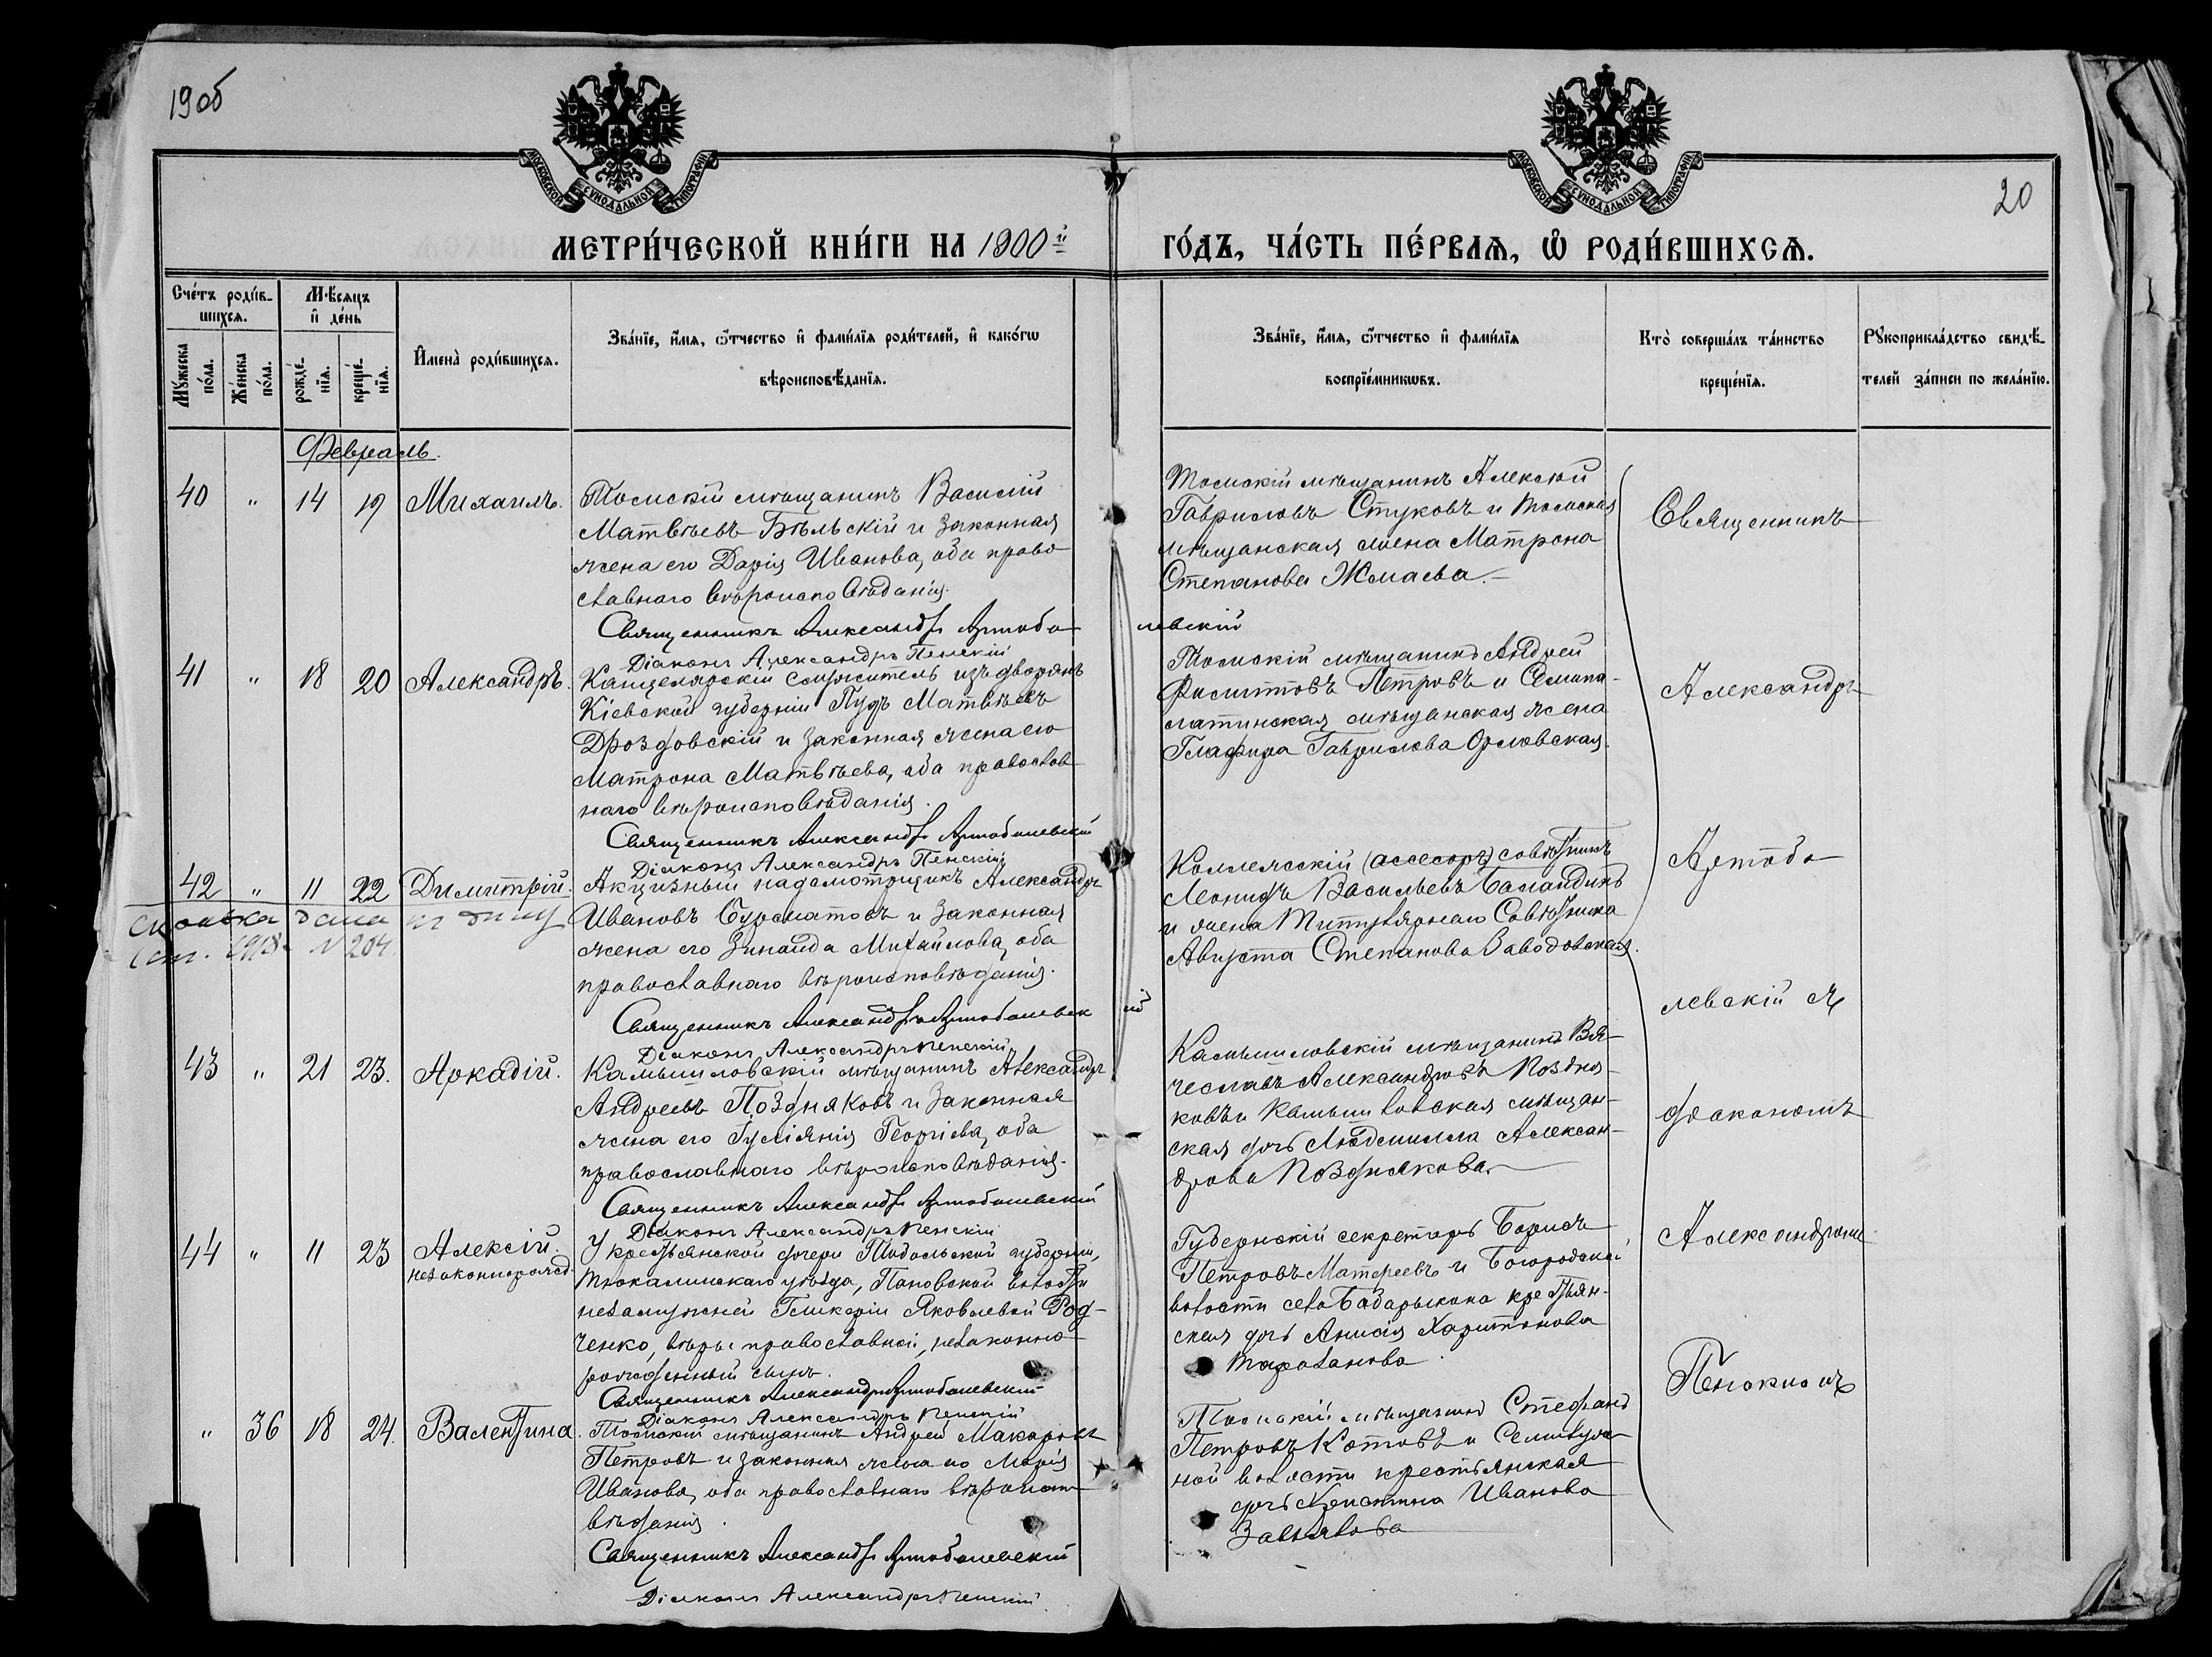 19об
20
МОСКОВСКОЙ СѴНОДАЛЬНОЙ ТИПОГРАФІИ
МОСКОВСКОЙ СѴНОДАЛЬНОЙ ТИПОГРАФІИ
МЕТРИ́ЧЕСКОЙ КНИ́ГИ НА 1900й
ГО́ДЪ, ЧА́СТЬ ПЕ́РВАѦ, Ѡ РОДИ́ВШИХСѦ.
Сче́тъ роди́в-
шихсѧ.
Мѣ́сѧцъ
и҆ де́нь
Мꙋ́жеска
по́ла.
Же́нска
по́ла.
рожде́-
нїѧ.
креще́-
нїѧ.
И҆мена̀ роди́вшихсѧ.
Зва́нїе, и҆́мѧ, ѻ҆́тчество и҆ фамилїѧ роди́телей, и҆ како́гѡ
вѣроисповѣ́данїѧ.
Зва́нїе, и҆́мѧ, ѻ҆́тчество и҆ фами́лїѧ
воспрїе́мникѡвъ.
Кто̀ соверша́лъ та́инство
креще́нїѧ.
Рꙋкоприкла́дство свидѣ́-
телей за́писи по жела́нїю.
Февраль.
40 " 14 19 Михаилъ.
Томскій мѣщанинъ Василій
Матвѣевъ Бѣльскій и законная
жена его Дарія Иванова, оба право-
славнаго вѣроисповѣданія.
Священникъ Александръ Артобо-
левскій
Діаконъ Александръ Пенскій
Томскій мѣщанинъ Алексѣй
Гавриловъ Стуковъ и томская
мѣщанская жена Матрона
Степанова
41 " 18 20 Александръ.
Канцелярскій служитель изъ дворянъ
Кіевской губерніи Пудъ Матвѣевъ
Дроздовскій и законная жена его
Матрона Матвѣева, оба православ-
наго вѣроисповѣданія.
Священникъ Александръ Артоболевскій
Діаконъ Александръ Пенскій
Томскій мѣщанинъ Андрей
Филиповъ Петровъ и Семипа-
латинская мѣщанская жена
Глафира Гаврилова Орловская.
42 " 11 22 Димитрій.
дана
1918 N 204
Акцизный надсмотрщикъ Александръ
Ивановъ и законная
жена его Зинаида Михайлова, оба
православнаго вѣроисповѣданія.
Священникъ Александръ Артоболевск
ій
Діаконъ Александръ Пенскій
Коллежскій (ассесоръ) совѣтникъ
Леонидъ Васильевъ Баландинъ
и жена Титулярнаго Совѣтника
Августа Степанова Заводовская.
43 " 21 23. Аркадій.
Камышловскій мѣщанинъ Александръ
Андреевъ Поздняковъ и законная
жена его Іуліянія Георгіева, оба
православнаго вѣроисповѣданія.
Священникъ Александръ Артоболевскій
Діаконъ Александръ Пенскій
Камышловскій мѣщанинъ Вя-
чеславъ Александровъ Поздня-
ковъ и Камышловская мѣщан-
ская дочь Людмилла Алексан-
дрова Позднякова.
44 " 11 23 Алексій.
незаконнорожд.
У крестьянской дочери Тобольской губерніи,
Тюкалинскаго уѣзда, Пановской волости
незамужней Гликеріи Яковлевой Род-
ченко, вѣры православной, незаконно-
рожденный сынъ.
Священникъ Александръ Артоболевскій
Діаконъ Александръ Пенскій
Губернскій секретарь Борисъ
Петровъ и Богородской
волости села Бабарыкина крестьян-
ская дочь Анисія Харитонова
Тараканова.
" 36 18 24. Валентина.
Томскій мѣщанинъ Андрей Макаровъ
Петровъ и законная жена его Марія
Иванова, оба православнаго вѣроиспо-
вѣданія.
Священникъ Александръ Артоболевскій
Діаконъ Александръ Пенскій.
Томскій мѣщанинъ Стефанъ
Петровъ Котовъ и Семилуж-
ной волости крестьянская
дочь Христина Иванова
Завьялова
Священникъ
Александръ
Артобо-
левскій съ
діакономъ
Александромъ
Пенскимъ